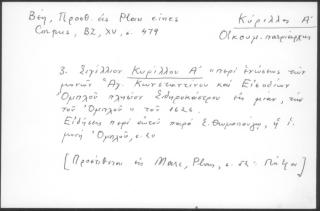 Βέη, Προσθ. εἰς Plan eines
Corpus, BZ, XV, σ. 479
Κύριλλος Α΄
Οἰκουμ. πατριάρχης
3. Σιγίλλιον Κυρίλλου Α΄ "περὶ ἑνώσεως τῶν
μονῶν Ἁγ. Κωνσταντίνου καὶ Εἰσοδίων
Ὀμπλοῦ πλησίον Σιδηροκάστρου εἰς μίαν, τὴν
τοῦ Ὀμπλοῦ" τοῦ 1626.
Εἰδήσεις περὶ αὐτοῦ παρὰ Σ. Θωμοπούλῳ, ἡ ἱ.
μονὴ Ὀμπλοῦ, σ. 20
[Προστίθεται εἰς Marc, Plan, σ. 52: Πάτραι]